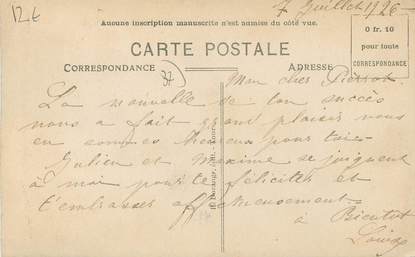 12 €
7 Juillet 1926
Aucune inscription manuscrite n'est admise du côté vue.
CARTE POSTALE
CORRESPONDANCE
ADRESSE
0 fr. 10
pour toute
CORRESPONDANCE
37
Mon cher Pierrot
La nouvelle de ton succès
nous a fait grand plaisir nous
en sommes heureux pour toi
Julien et Maxime se joignent
à moi pour te féliciter et
t'embrasser affectueusement
à Bientôt
Louise